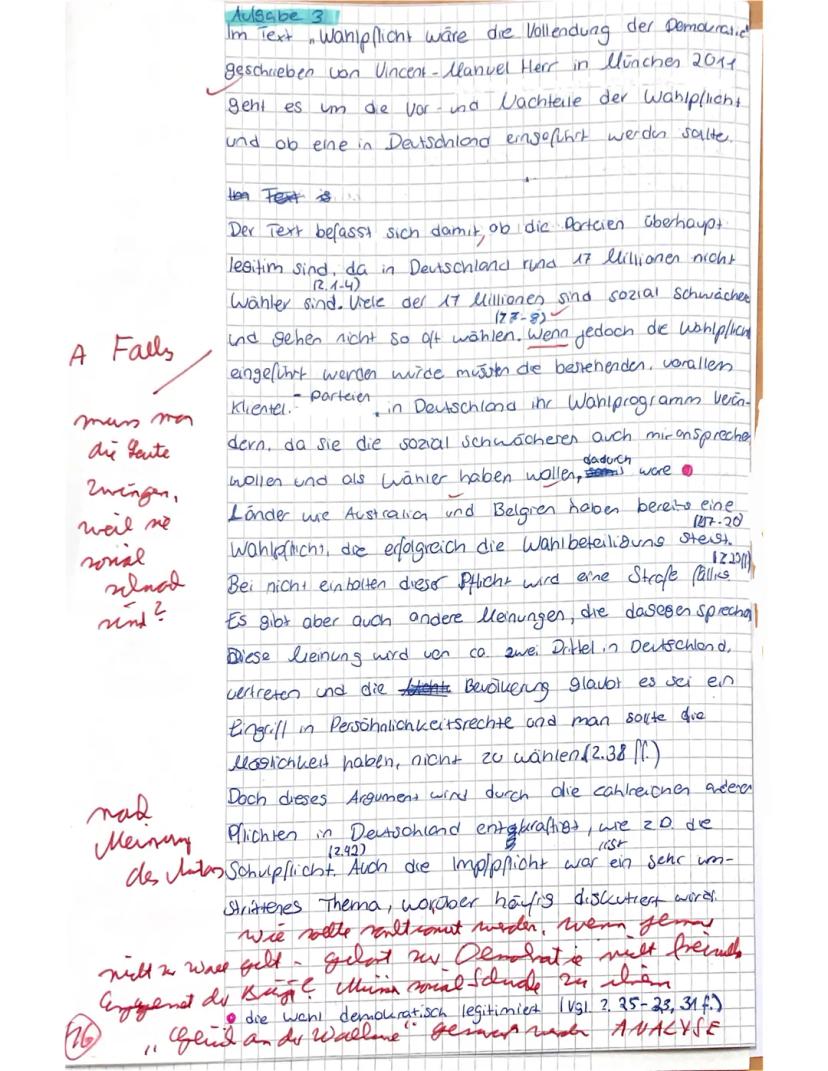 Aufgabe 3
Im Text „Wahlpflicht wäre die Vollendung der Demokratie
geschrieben von Vincent-Manuel Herr in München 2011
geht es um die Vor- und Nachteile der Wahlpflicht
und ob eine in Deutschland eingeführt werden sollte.
Im Text is
Der Text befasst sich damit, ob die Parteien überhaupt
legitim sind, da in Deutschland rund 17 Millionen nicht
(Z.1-4)
Wähler sind. Viele der 17 Millionen sind sozial schwächer
(Z7-8)
und gehen nicht so oft wählen. Wenn jedoch die Wahlpflicht
A Falls
eingeführt werden würde müssten die bestehenden, vorallem
Klientel-Parteien, in Deutschland ihr Wahlprogramm verän-
muss man
dern, da sie die sozial schwächeren auch mit ansprechen
die Leute
wollen und als Wähler haben wollen, dadurch wäre
zwingen,
Länder wie Australien und Belgien haben bereits eine
weil sie
(Z17-20)
Wahlpflicht, die erfolgreich die Wahlbeteiligung steigt.
sozial
(Z20ff)
Bei nicht einhalten dieser Pflicht wird eine Strafe fällig
schwach
Es gibt aber auch andere Meinungen, die dagegen sprechen
sind?
Diese Meinung wird von ca. zwei Drittel in Deutschland,
vertreten und die Bevölkerung glaubt es sei ein
Eingriff in Persönlichkeitsrechte und man sollte die
Möglichkeit haben, nicht zu wählen (Z.38 ff.)
Doch dieses Argument wird durch die zahlreichen anderen
nach
Pflichten in Deutschland entkräftigt, wie z.B. die
Meinung
(Z.42)
ist
des Autors
Schulpflicht. Auch die Impfpflicht war ein sehr um-
strittenes Thema, worüber häufig diskutiert wird.
Wie sollte kontrolliert werden, wenn jemand
nicht zu Wahl geht - gehört zur Demokratie nicht
der Bürger? Müssen sozial Schwache zu ihrem
die Wahl demokratisch legitimiert (Vgl. Z. 25-23, 31 f.)
16
„Glück an der Wahlurne“ werden ANALYSE